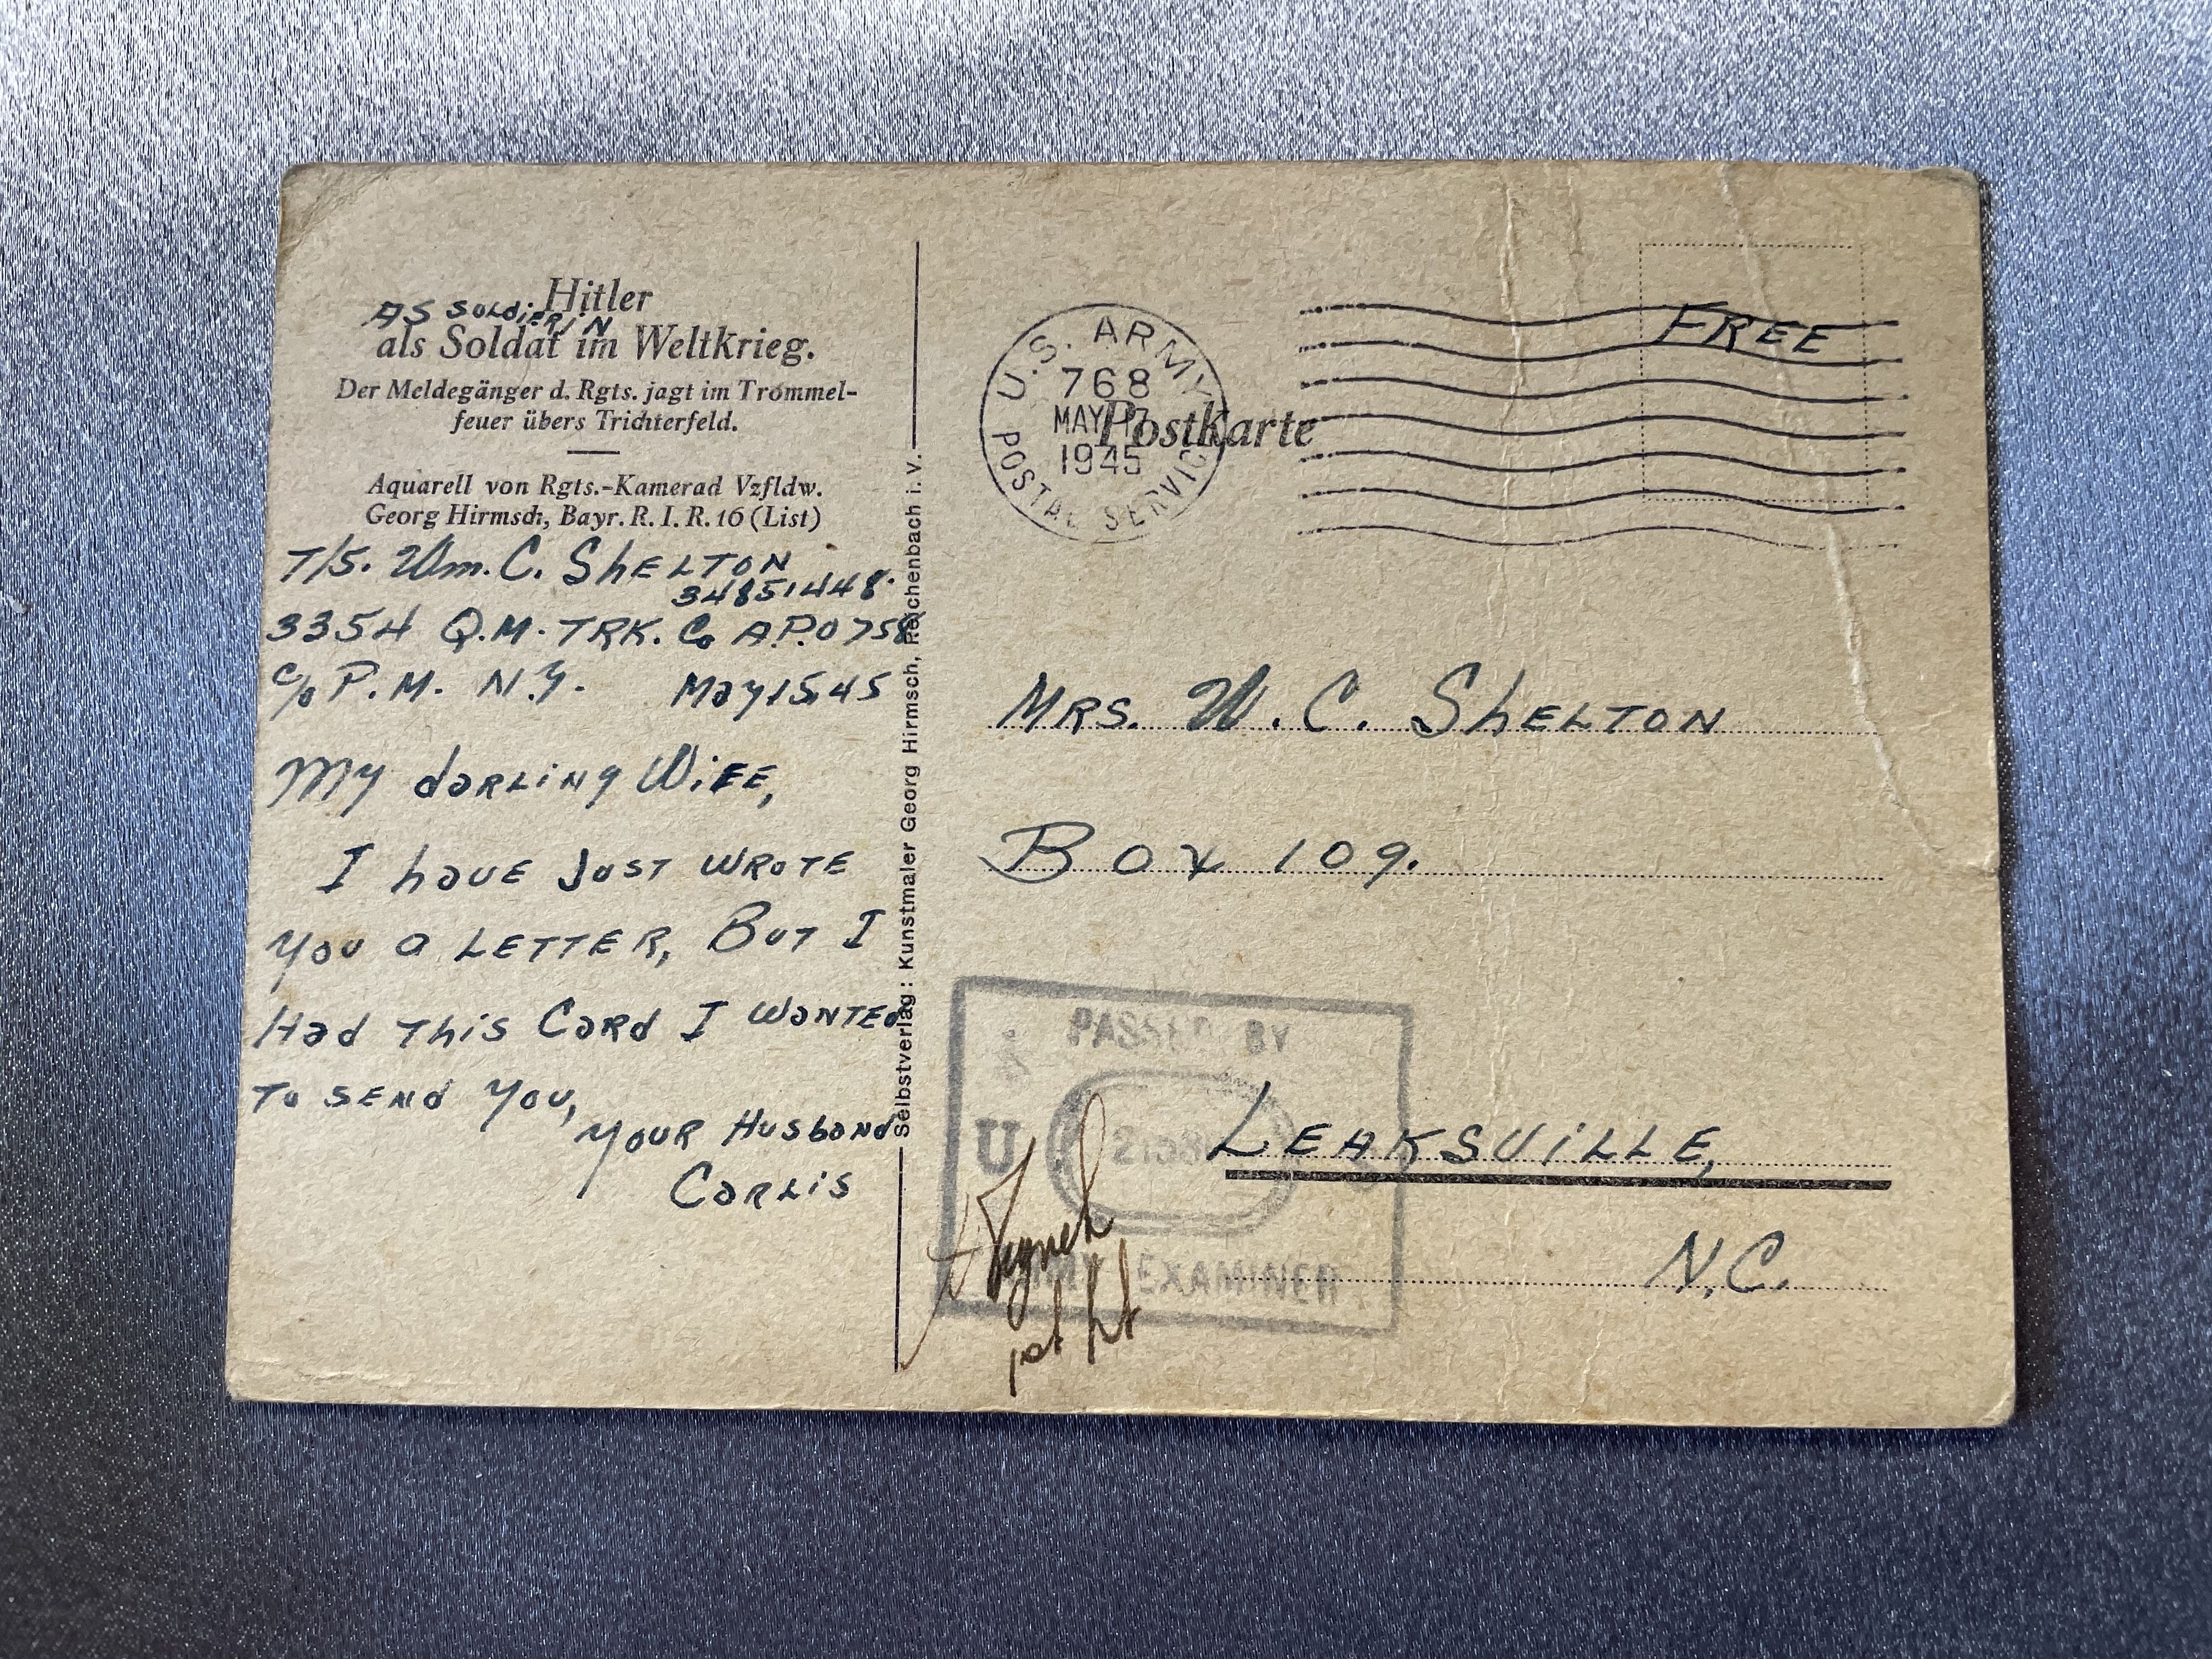 Hitler
AS SOLdiER iN
als Soldat im Weltkrieg.
Der Meldegänger d. Rgts. jagt im Trommel-
feuer übers Trichterfeld.
Aquarell von Rgts.-Kamerad Vzfldw.
Georg Hirmsch, Bayr. R. I. R. 16 (List)
T/5. Wm. C. ShELTON
34851448.
3354 Q.M. TRK. Co A.P.O 758
c/o P. M. N.Y. May 15 45
My darling WiFE,
I haVE JUST WROTE
you a LETTER, BUT I
Had This Card I WaNTEd
To SENd You,
YOUR HUSbaNd
CaRLiS
Selbstverlag: Kunstmaler Georg Hirmsch, Reichenbach i. V.
U.S. ARMY
768
MAY 17
1945
POSTAL SERVICE
Postkarte
FREE
MRS. W. C. ShELTON
BOX 109.
LEAKSViLLE,
N.C.
PASSED BY
U
EXAMINER
1st Lt